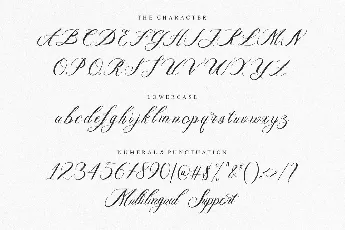 THE CHARACTER
A B C D E F G H I J K L M N
O P Q R S T U V W X Y Z
LOWERCASE
a b c d e f g h i j k l m n o p q r s t u v w x y z
NUMERAL & PUNCTUATION
1234567890!@#$%^&*()<>/?
Multilingual Support